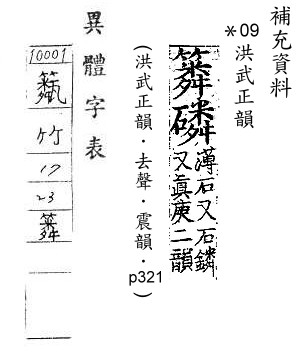 補充資料
*09
洪武正韻
磷 薄石又石鏻
又真庚二韻
(洪武正韻・去聲・震韻・p321)
異體字表
10001
竹
17
23